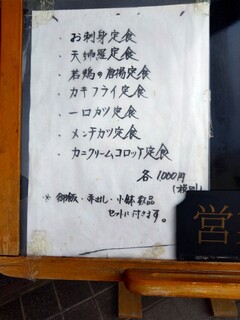 ・お刺身定食
・天婦羅定食
・若鶏の唐揚定食
・カキフライ定食
・一口カツ定食
・メンチカツ定食
・カニクリームコロッケ定食
各1000円
(税別)
※御飯・味出し・小鉢
セットに付きます。
営